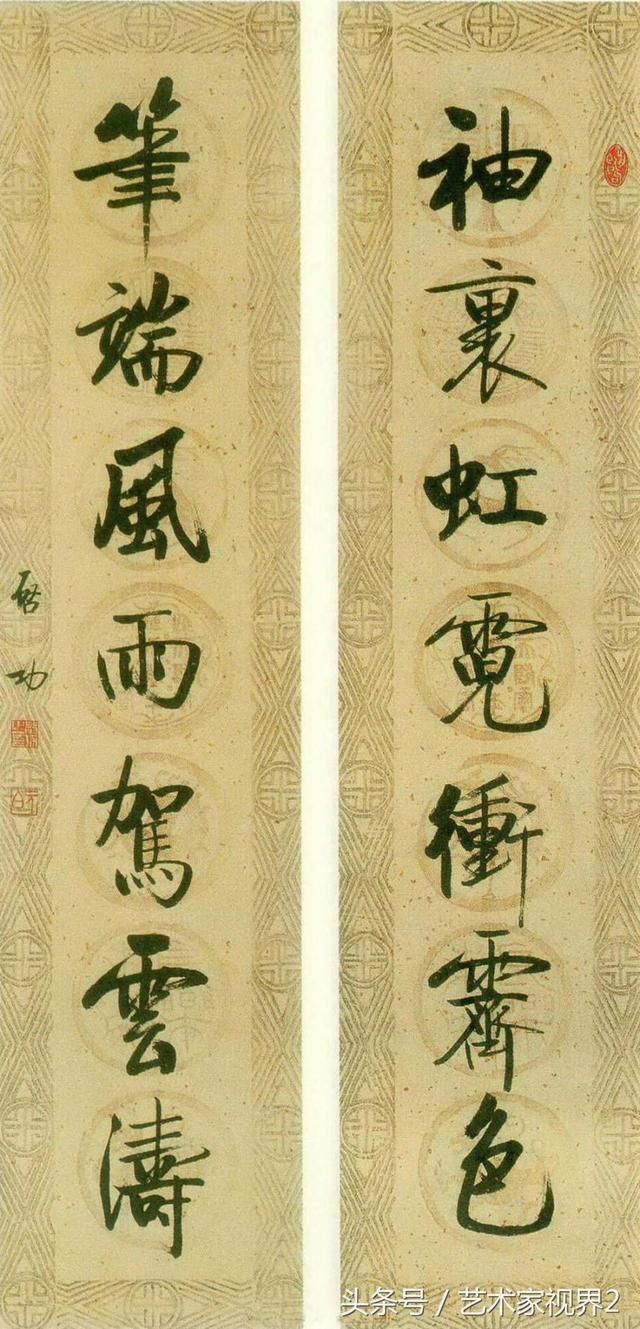 袖裏虹霓衝霽色
筆端風雨駕雲濤
啓功
头条号 / 艺术家视界2